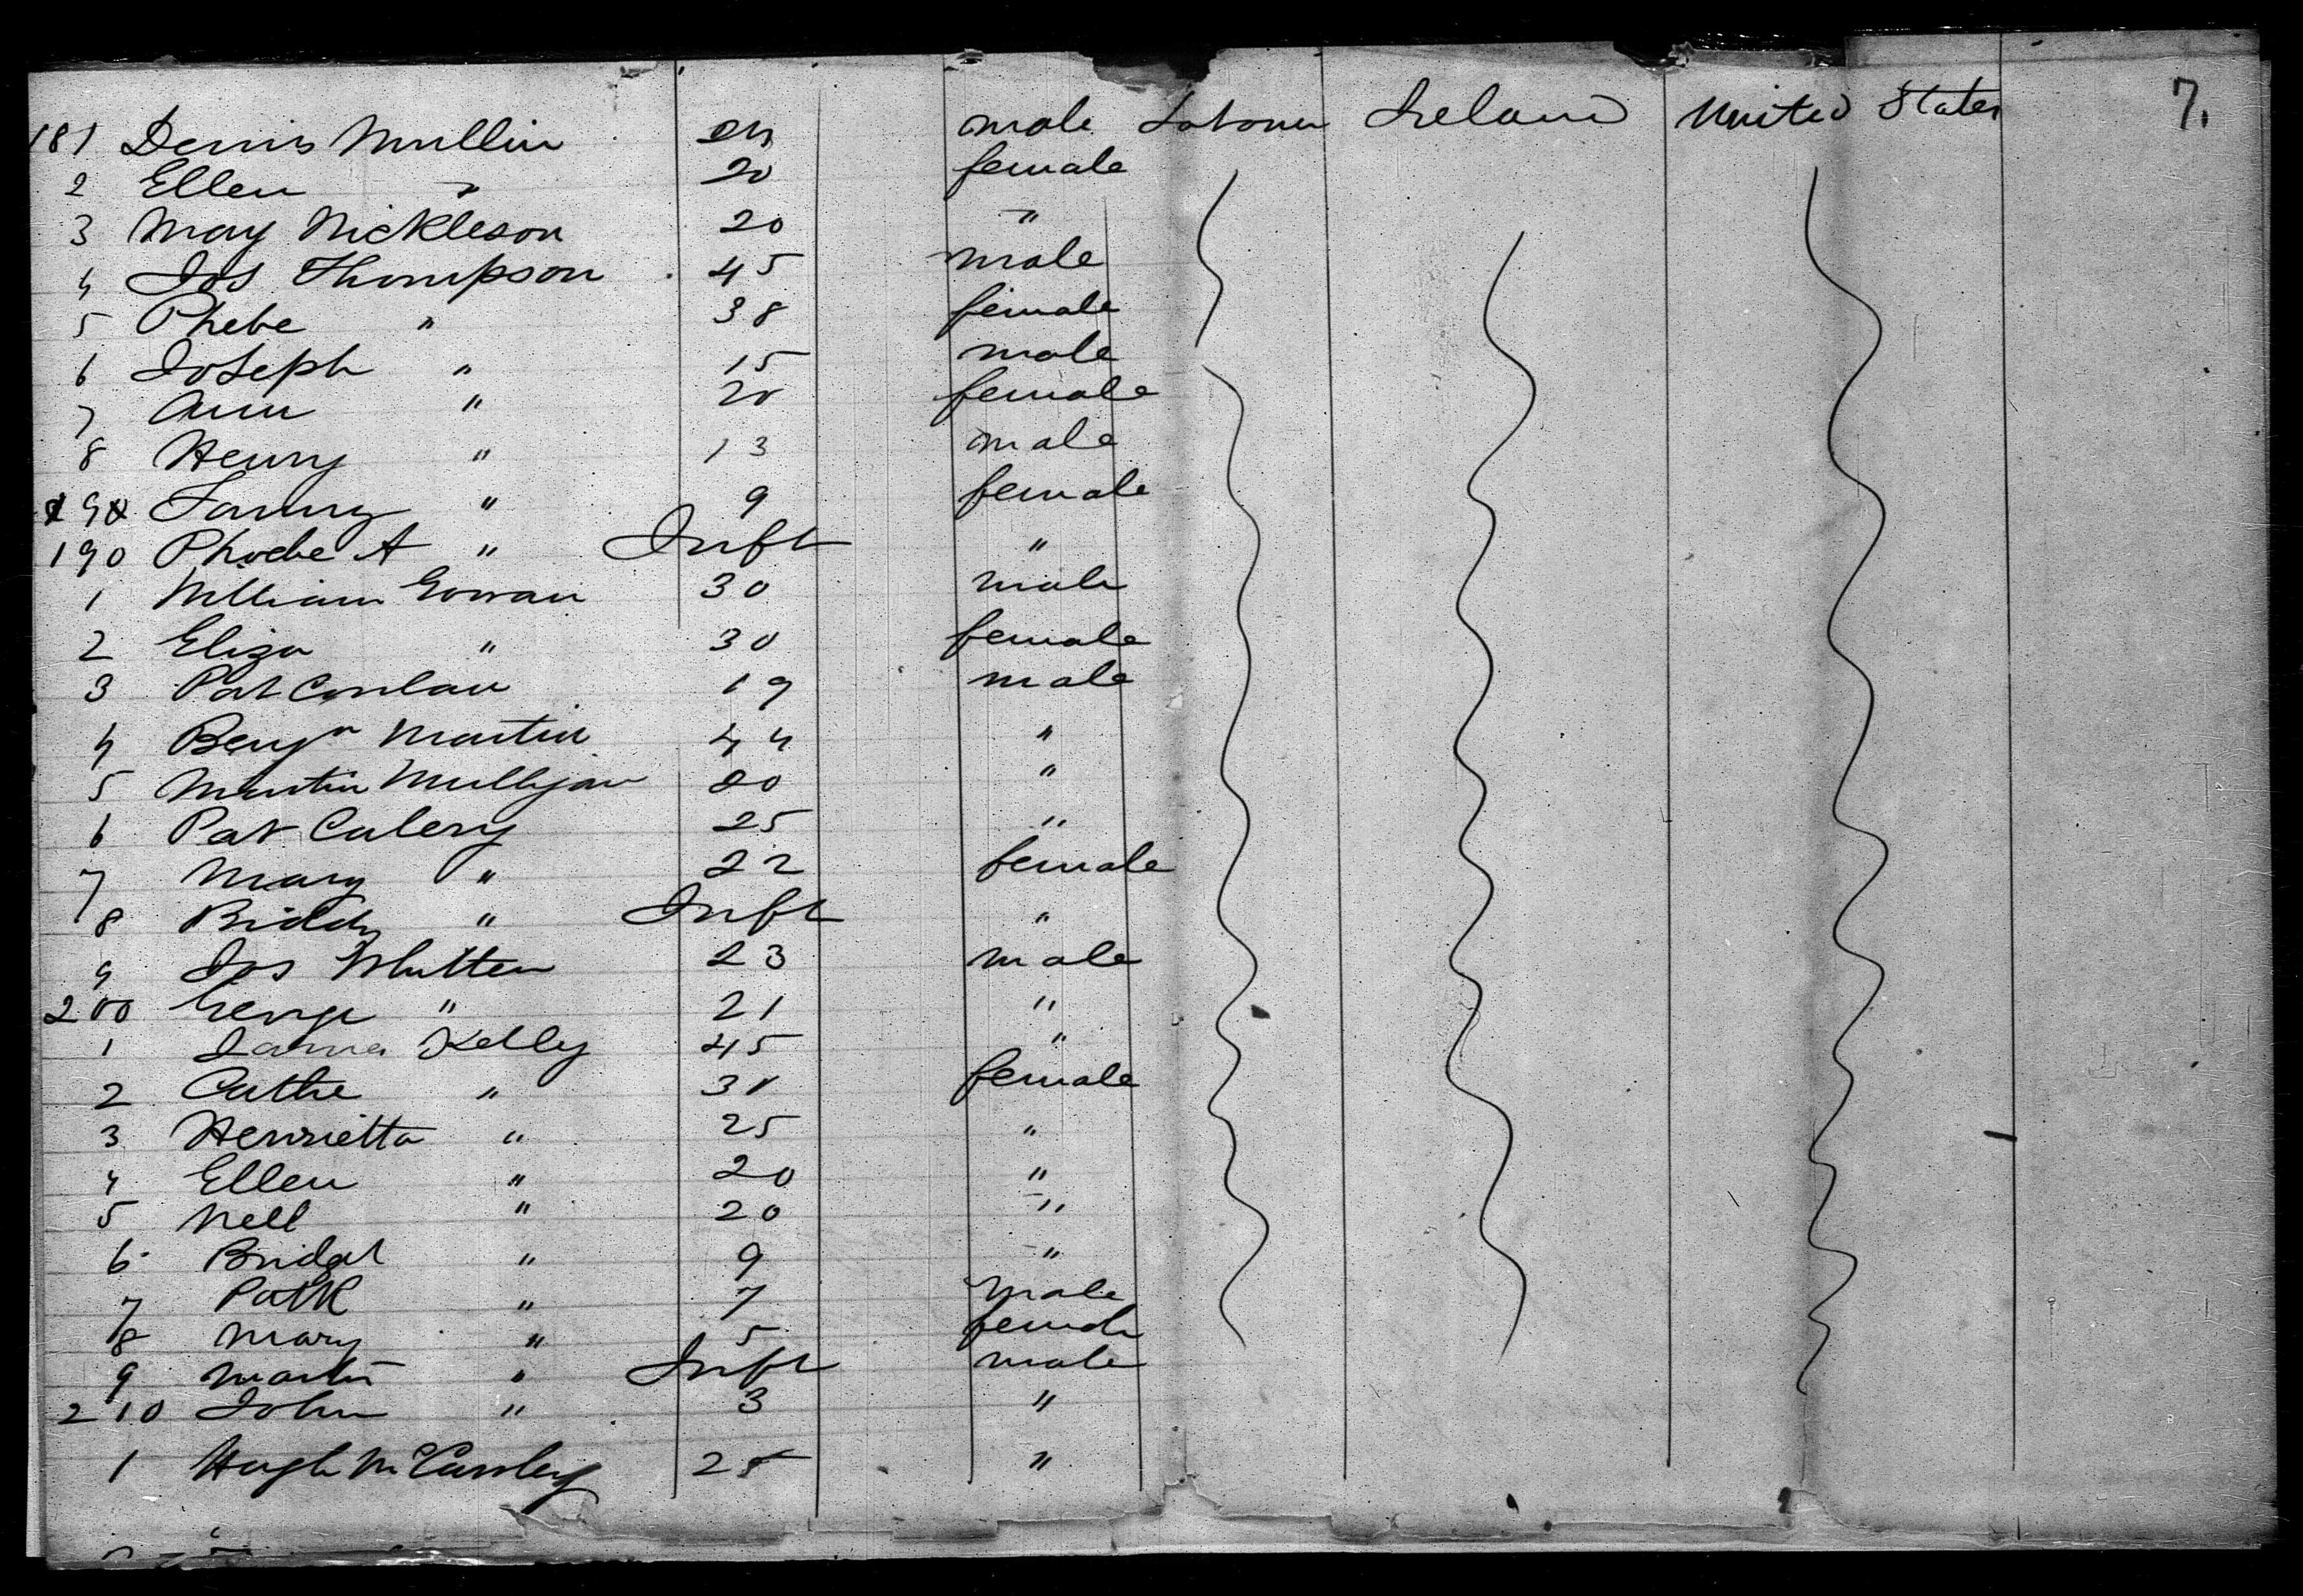 7.
181 Denis Mullin 24 male Labourer Ireland United States
2 Ellen " 20 female
3 May Nickleson 20 "
4 Jos Thompson 45 male
5 Phebe " 38 female
6 Joseph " 15 male
7 Ann " 20 female
8 Henry " 13 male
Fanny " 9 female
190 Phoebe A " Inft "
1 William Gowan 30 male
2 Eliza " 30 female
3 Pat Conlan 19 male
4 Benjn Martin 44 "
5 Martin Mulligan 20 "
6 Pat Culery 25 "
7 Mary " 22 female
8 Biddy " Inft "
9 Jos Whitten 23 male
200 George " 21 "
1 James Kelly 45 "
2 Cathe " female
3 Henrietta " 25 "
4 Ellen " 20 "
5 Nell " 20 "
6 Bridgt " 9 "
7 Patk " 7 male
8 Mary " 5 female
9 Martin " Inft male
210 John " 3 "
1 Hugh 25 "